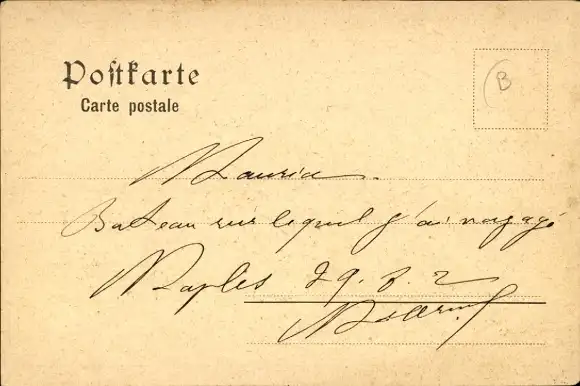 Postkarte
Carte postale
B
Maurice
Bateau sur lequel j'ai voyagé
Naples 29. 3. 2